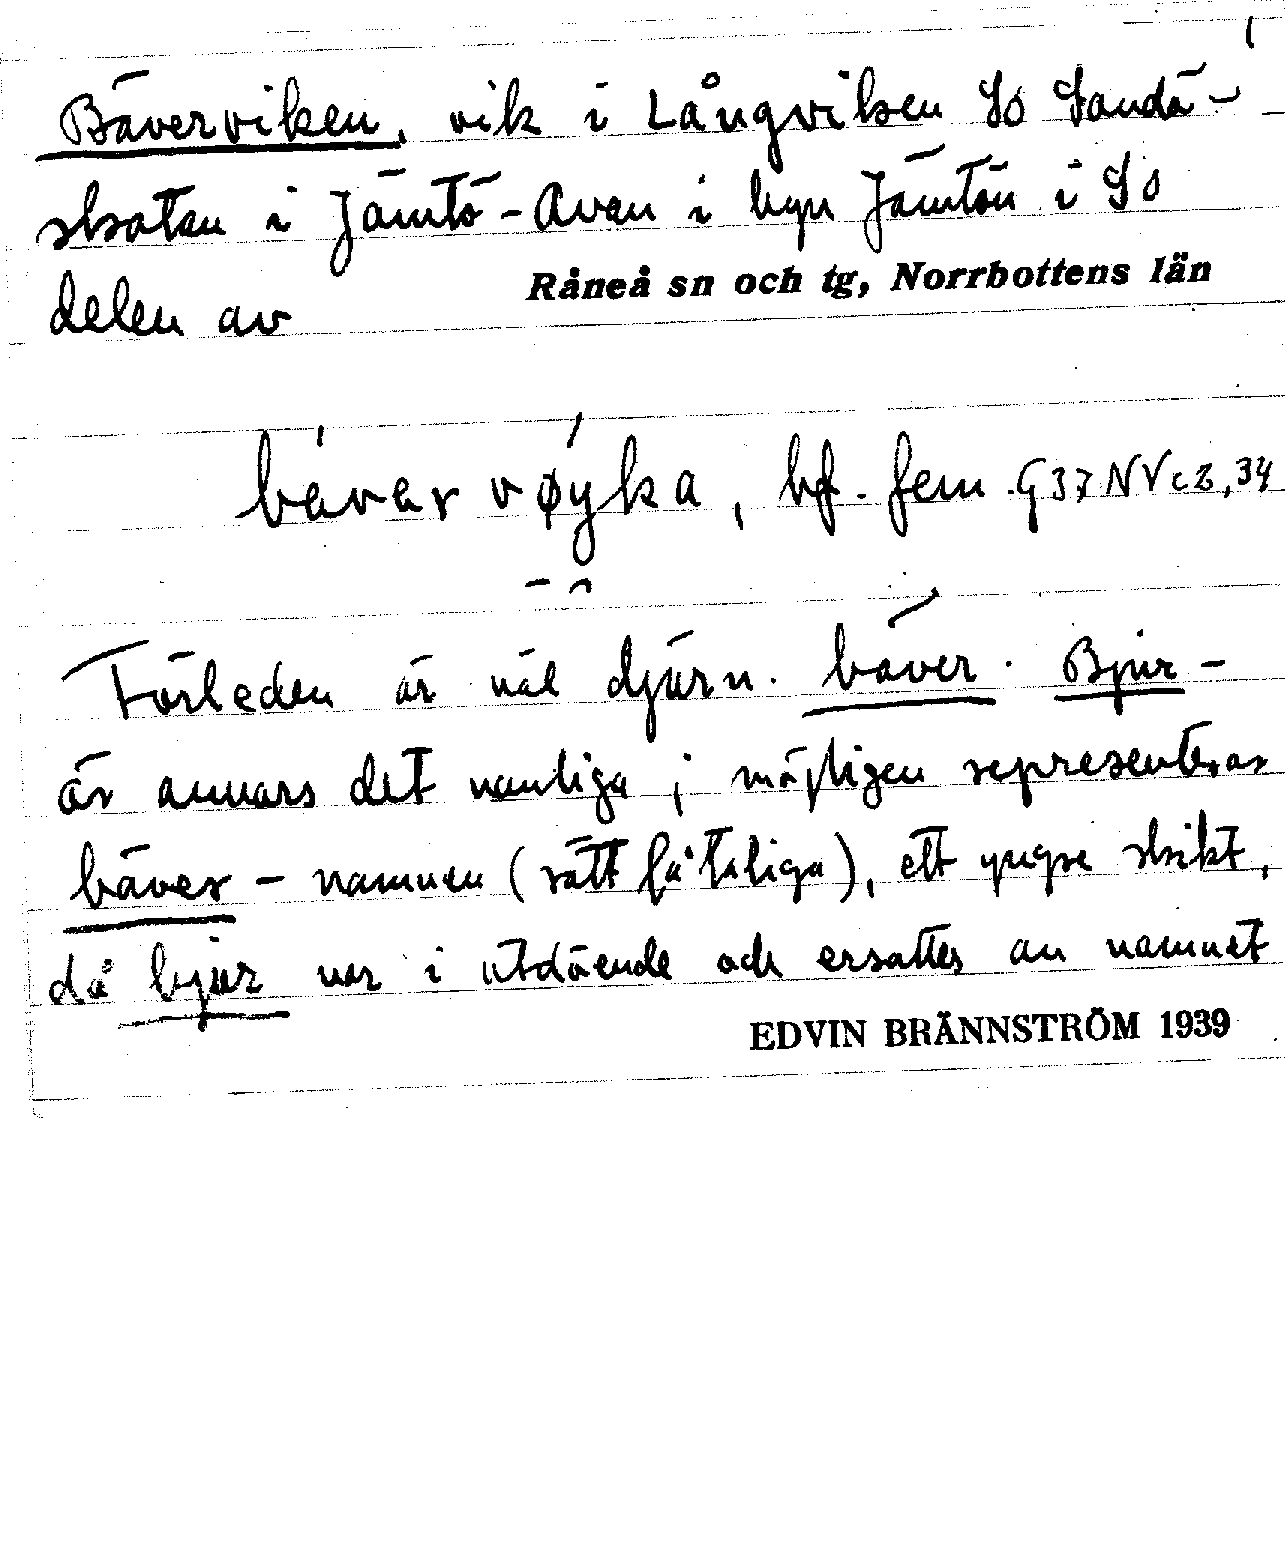 Bäverviken, vik i Långviken SO Sandö-
skatan i Jämtö-Avan i byn Jämtön i SO
delen av Råneå sn och tg, Norrbottens län
bávar vǿyka, bf. fem. G37NVc2,34
Förleden är väl djurn. bäver. Bjur-
är annars det vanliga; möjligen representerar
bäver-namnen (rätt fåtaliga), ett yngre skikt,
då bjur var i utdöende och ersattes av namnet
EDVIN BRÄNNSTRÖM 1939